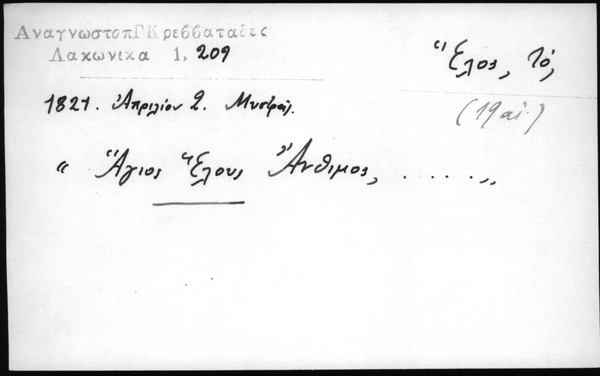 ΑναγνωστοπΓΚρεββαταδες
Λακωνικα 1, 209
Ἕλος, Τό,
(19 αἰ.)
1821. Ἀπριλίου 2. Μυστρᾶς.
“ Ἅγιος Ἕλους Ἄνθιμος, . . . . „